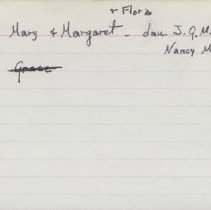 & Flora
Mary & Margaret - dau J.G.M
Nancy M
Grace